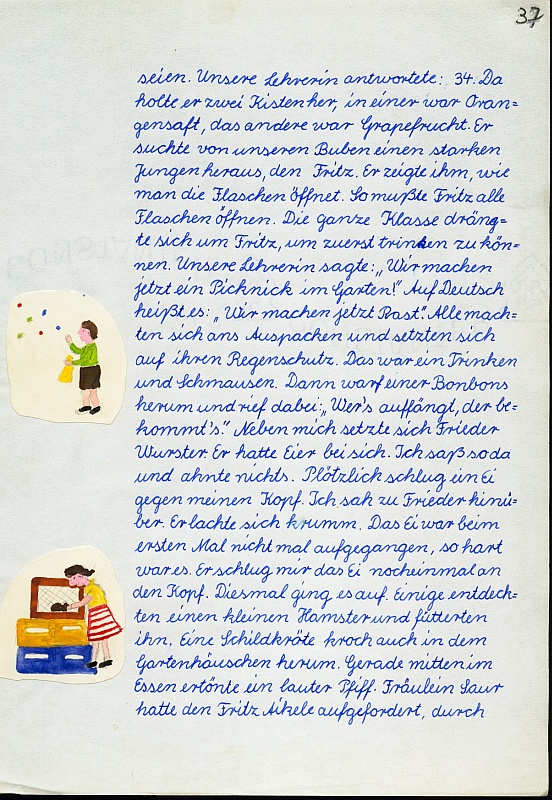 37
seien. Unsere Lehrerin antwortete: 34. Da
holte er zwei Kisten her, in einer war Oran=
gensaft, das andere war Grapefrucht. Er
suchte von unseren Buben einen starken
Jungen heraus, den Fritz. Er zeigte ihm, wie
man die Flaschen öffnet. So mußte Fritz alle
Flaschen öffnen. Die ganze Klasse dräng=
te sich um Fritz, um zuerst trinken zu kön=
nen. Unsere Lehrerin sagte: „Wir machen
jetzt ein Picknick im Garten!" Auf Deutsch
heißt es: „Wir machen jetzt Rast". Alle mach=
ten sich ans Auspacken und setzten sich
auf ihren Regenschutz. Das war ein Trinken
und Schmausen. Dann warf einer Bonbons
herum und rief dabei: „Wer's auffängt, der be=
kommt's." Neben mich setzte sich Frieder
Wurster. Er hatte Eier bei sich. Ich saß so da
und ahnte nichts. Plötzlich schlug ein Ei
gegen meinen Kopf. Ich sah zu Frieder hinü=
ber. Er lachte sich krumm. Das Ei war beim
ersten Mal nicht mal aufgegangen, so hart
war es. Er schlug mir das Ei nocheinmal an
den Kopf. Diesmal ging es auf. Einige entdeck=
ten einen kleinen Hamster und fütterten
ihn. Eine Schildkröte kroch auch in dem
Gartenhäuschen herum. Gerade mitten im
Essen ertönte ein lauter Pfiff. Fräulein Saur
hatte den Fritz Aikele aufgefordert, durch